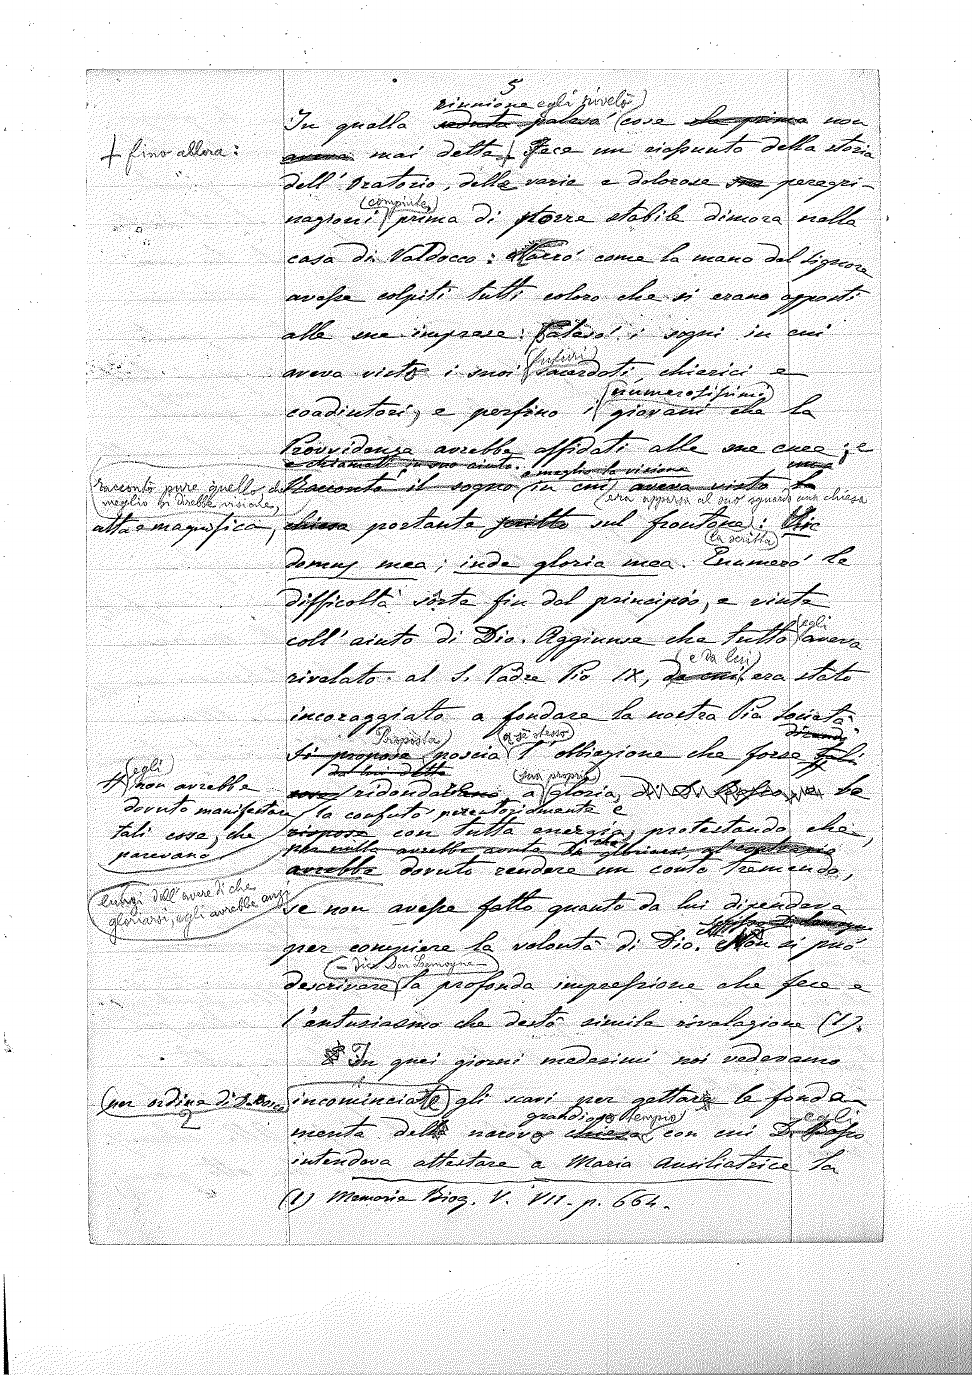 5
riunione egli rivelò
In quella seduta palesò cose che prima non
+ fino allora:
aveva mai dette + Fece un riassunto della storia
dell'Oratorio, delle varie e dolorose sue peregri-
(compiute)
nazioni prima di porre stabile dimora nella
casa di Valdocco: Narrò come la mano del Signore
avesse colpiti tutti coloro che si erano opposti
alle sue imprese: Palesò i sogni in cui
futuri
aveva visto i suoi sacerdoti chierici e
numerosissimi
coadiutori, e perfino i giovani che la
Provvidenza avrebbe affidati alle sue cure; e
e chiamati in suo aiuto.
o meglio la visione
una
racconto pure quello, che
meglio si direbbe visione,
Raccontò il sogno in cui aveva visto
era apparsa al suo sguardo una chiesa
alta e magnifica,
chiesa portante scritto sul frontone: Hic
la scritta
domus mea; inde gloria mea. Enumerò le
difficoltà sorte fin dal principio, e vinte
egli
coll'aiuto di Dio. Aggiunse che tutto aveva
e da lui
rivelato al S. Padre Pio IX, da cui era stato
incoraggiato a fondare la nostra Pia Società
Proposta
a sè stesso
dicendo
Si propose poscia l'obbiezione che forse tali
da lui dette
(egli)
# non avrebbe
dovuto manifestare
tali cose, che
parevano
sua propria
cose ridondare a gloria, D. Bosco
la confutò perentoriamente e
rispose con tutta energia, protestando che,
per nulla avrebbe avuto di che gloriarsi, al contrario
lungi dall'avere di che
gloriarsi, egli avrebbe anzi
avrebbe dovuto rendere un conto tremendo,
se non avesse fatto quanto da lui dipendeva
per compiere la volontà di Dio. Non si può
- dice Don Lemoyne -
descrivere la profonda impressione che fece e
l'entusiasmo che destò simile rivelazione (1).
In quei giorni medesimi noi vedevamo
(per ordine di D. Bosco
2
incominciate gli scavi per gettare le fonda-
grandioso tempio
egli
menta del nuovo chiesa con cui D. Bosco
intendeva attestare a Maria Ausiliatrice la
(1) Memorie Biog. V. VII. p. 664.